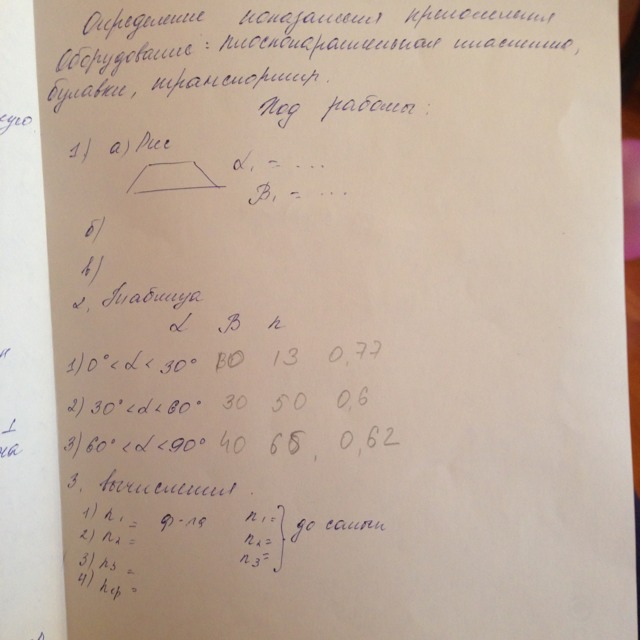 Определение показателя преломления
Оборудование: плоскопараллельная пластина,
булавки, транспортир.
Ход работы:
1) а) Рис
α₁ = ...
β₁ = ...
б)
в)
2, Таблица
α β n
1) 0° < α < 30° 10 13 0,77
2) 30° < α < 60° 30 50 0,6
3) 60° < α < 90° 40 65, 0,62
3. Вычисления.
1) n₁ = ф-ла n₁ =
2) n₂ = n₂ = до сотых
3) n₃ = n₃ =
4) nср =
1
на